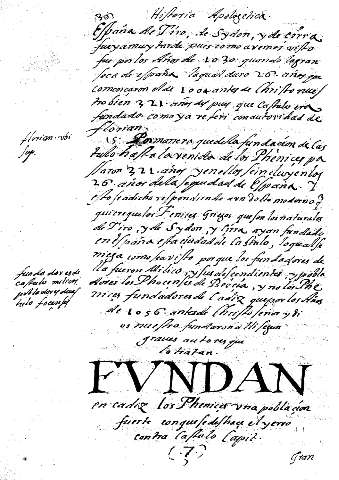 36 Historia Apologetica.
España de Tiro, de Sydon, y de otra
fue ya muy tarde pues como avemos visto
fue por los Años de 1030. quando la gran
seca de españa la qual duro 26. años que
comencaron el de 1004 antes de Christo nues
tro bien 321. años des pues que Castulo era
fundado como ya referi con autoridad de
florian.
florian. ubi
sup.
15. Por manera que de la fundacion de Cas
tulo hasta la venida de los Phenices pa
ssaron 321. años y en ellos se incluyen los
26. años de la sequedad de España. Y
esto se a dicho respondiendo a un docto moderno
quiere que los Fenices Griegos que son los naturales
de Tiro, y de Sydon, y ayan fundado
en españa esta ciudad de Castulo, lo qual se
niega como se a visto por que los fundadores de
la fueron Milico, y sus descendientes, y pobla
dores los Phocenses de Phocia, y no los Phe
nices fundadores de Cadiz que por los Años
fundadores de
castulo milico,
pobladores della
los focenses
de 1056. antes de Christo señor
nuestro fundaron a segun
graves autores que
lo tratan.
FVNDAN
en cadiz los Phenices una poblacion
fuerte con que se deshace el yerro
contra Castulo Capit.
(.7.)
Gran